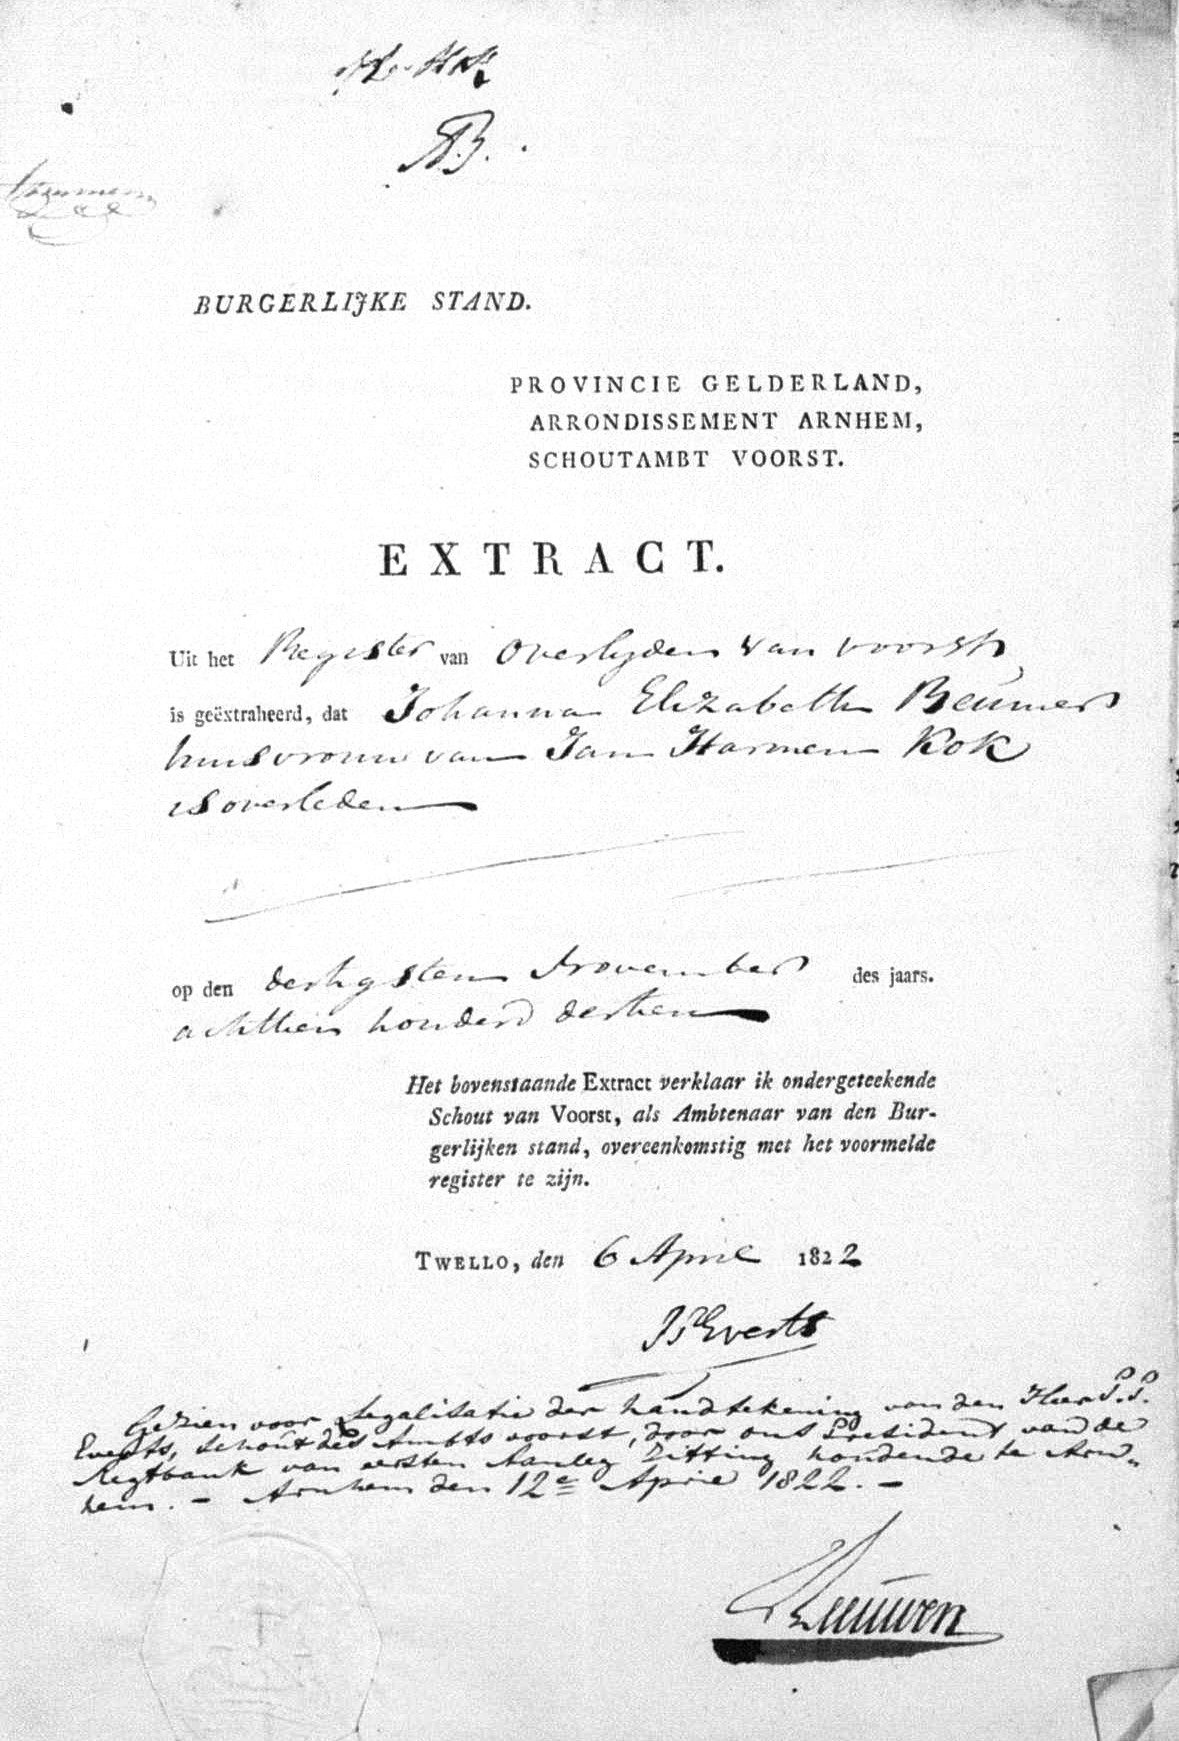 BURGERLIJKE STAND.
PROVINCIE GELDERLAND,
ARRONDISSEMENT ARNHEM,
SCHOUTAMBT VOORST.
EXTRACT.
Uit het Register van Overlyden van voorst,
is geëxtraheerd, dat Johanna Elizabeth Beumer
huisvrouw van Jan Harmen Kok
is overleden
op den dertigsten November des jaars.
achttien honderd dertien
Het bovenstaande Extract verklaar ik ondergeteekende
Schout van Voorst, als Ambtenaar van den Bur-
gerlijken stand, overeenkomstig met het voormelde
register te zijn.
TWELLO, den 6 April 1822
Everts
Gezien voor Legalisatie der handtekening van den Heer P.P.
Everts, Schout des Ambts voorst, door ons President van de
Regtbank van eersten Aanleg zitting houdende te Arn„
hem. - Arnhem den 12e April 1822. -